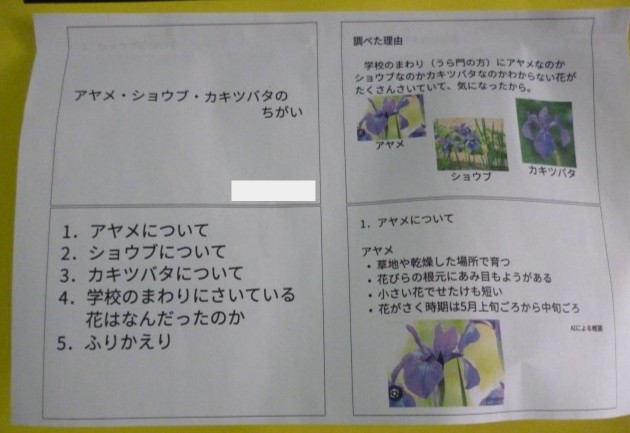 アヤメ・ショウブ・カキツバタの
ちがい
調べた理由
学校のまわり（うら門の方）にアヤメなのか
ショウブなのかカキツバタなのかわからない花が
たくさんさいていて、気になったから。
アヤメ
ショウブ
カキツバタ
1．アヤメについて
2．ショウブについて
3．カキツバタについて
4．学校のまわりにさいている
花はなんだったのか
5．ふりかえり
1．アヤメについて
アヤメ
• 草地や乾燥した場所で育つ
• 花びらの根元にあみ目もようがある
• 小さい花でせたけも短い
• 花がさく時期は5月上旬ごろから中旬ごろ
AIによる概要